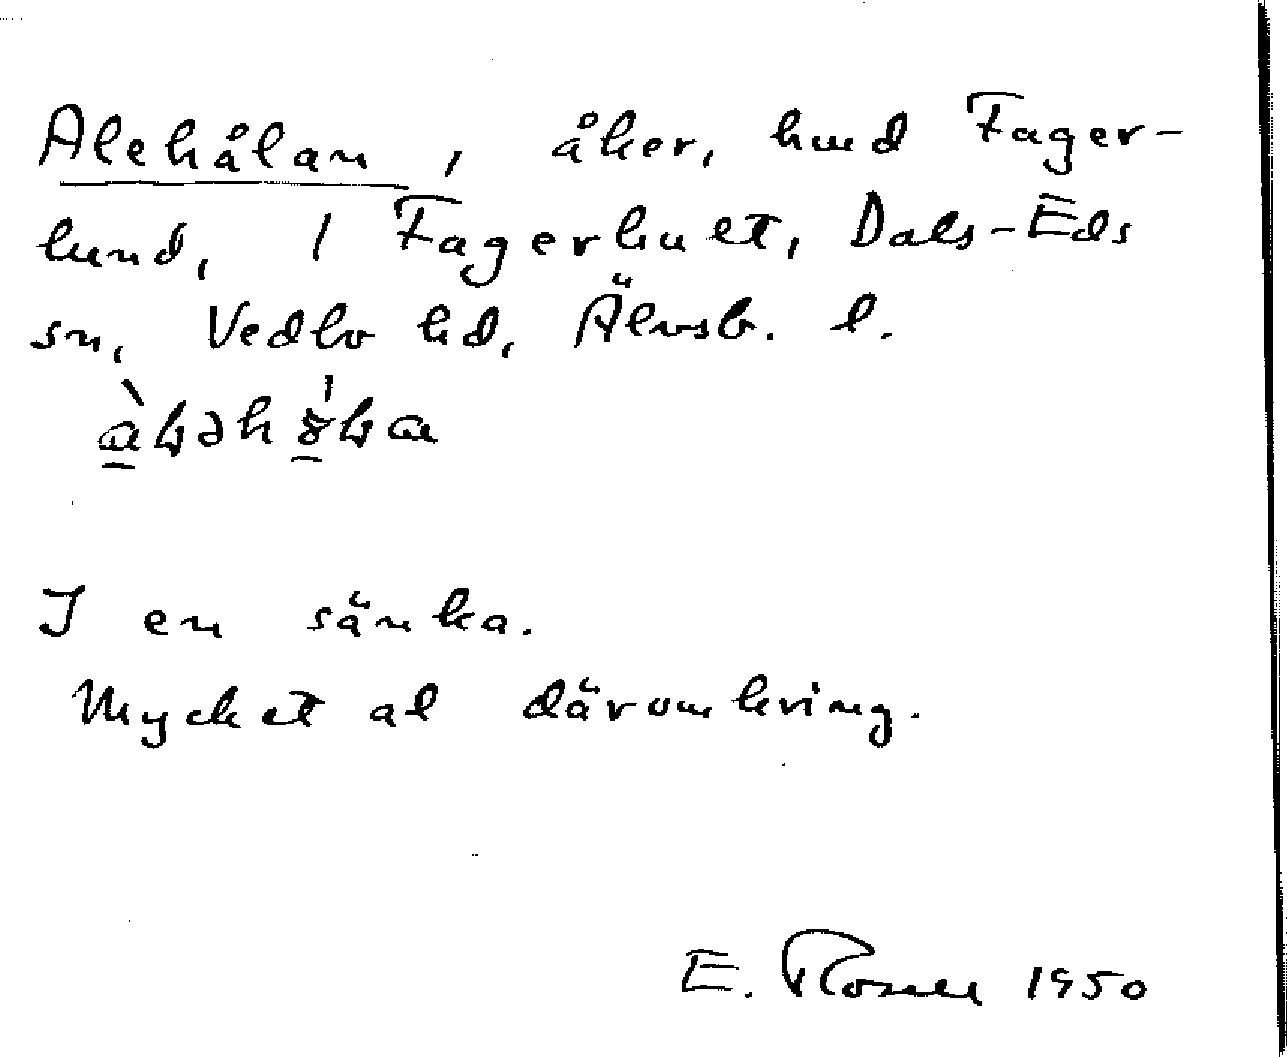 Alehålan, åker, hmd Fager-
lund, 1 Fagerhult, Dals-Eds
sn, Vedbo hd, Älvsb. l.
I en sänka.
Mycket al däromkring.
E. Rosell 1950